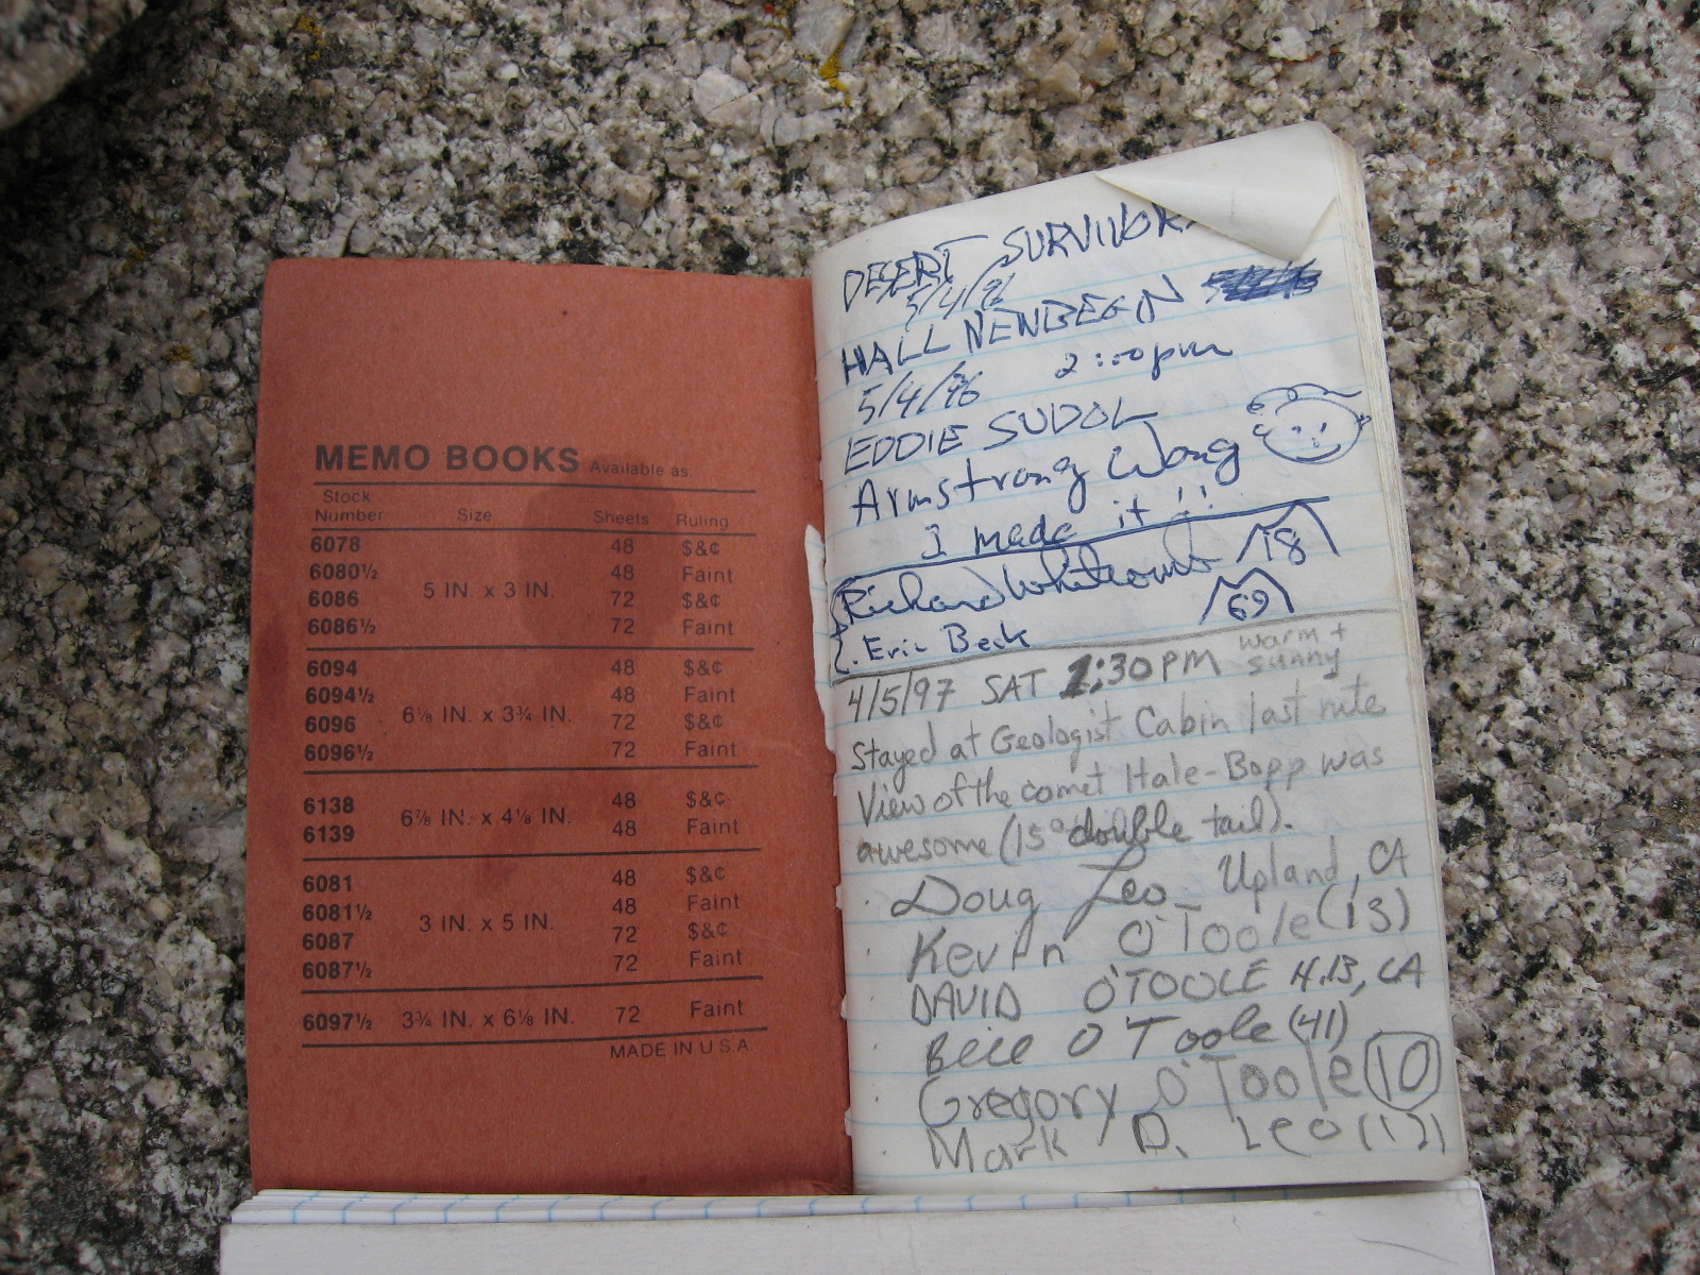 MEMO BOOKS Available as:
Stock Number Size Sheets Ruling
6078 48 $&¢
6080½ 48 Faint
5 IN. x 3 IN.
6086 72 $&¢
6086½ 72 Faint
6094 48 $&¢
6094½ 48 Faint
6⅛ IN. x 3¾ IN.
6096 72 $&¢
6096½ 72 Faint
6138 48 $&¢
6⅞ IN. x 4⅛ IN.
6139 48 Faint
6081 48 $&¢
6081½ 48 Faint
3 IN. x 5 IN.
6087 72 $&¢
6087½ 72 Faint
6097½ 3¾ IN. x 6⅛ IN. 72 Faint
MADE IN U.S.A.
DESERT SURVIVOR
5/4/96
HALL NENBEGN
5/4/96 2:00pm
EDDIE SUDOL
Armstrong Wong
I made it!!
Richard 18
69
Eric Beck
4/5/97 SAT 1:30PM warm + sunny
Stayed at Geologist Cabin last nite
View of the comet Hale-Bopp was
awesome (15° double tail).
Doug Leo Upland, CA
Kevin O'Toole (13)
DAVID O'TOOLE H.B, CA
Bill O'Toole (41)
Gregory O'Toole 10
Mark D. Leo (12)